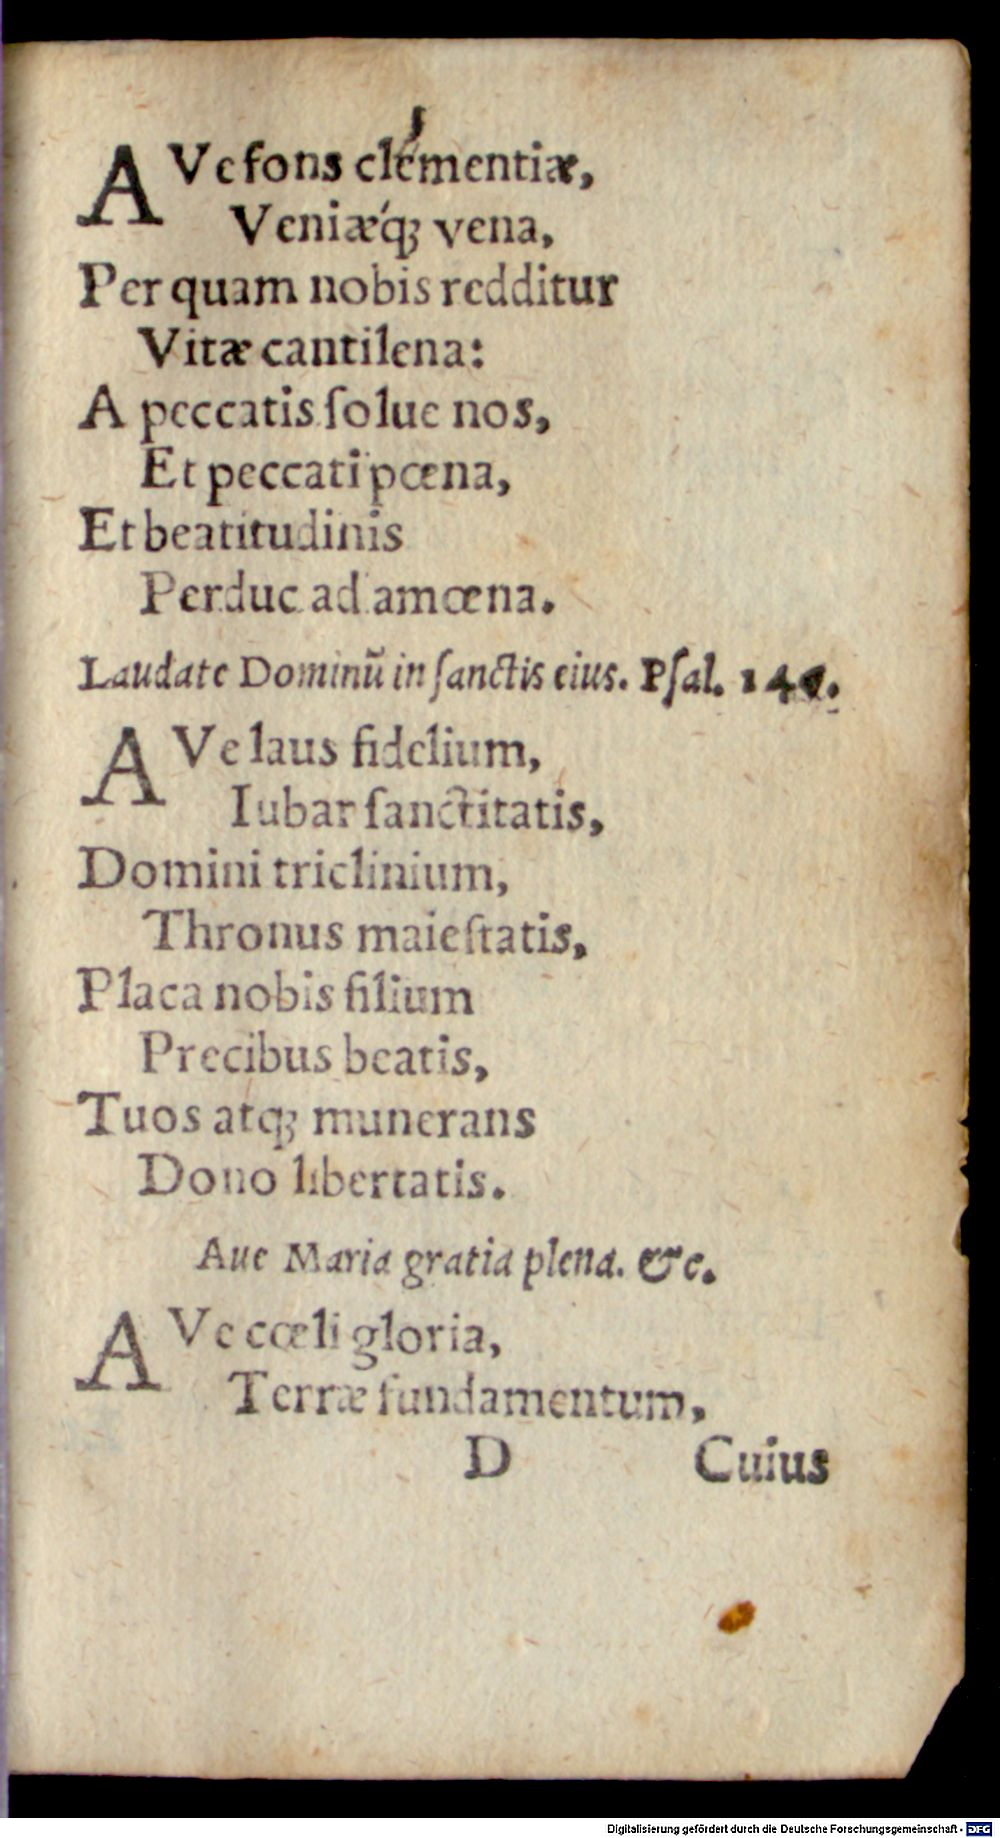 AVe fons clémentiæ,
Veniæq́; vena,
Per quam nobis redditur
Vitæ cantilena:
A peccatis ſolue nos,
Et peccati pœna,
Et beatitudinis
Perduc ad amœna.
Laudate Dominū in ſanctis eius. Pſal.
AVe laus fidelium,
Iubar ſanctitatis,
Domini triclinium,
Thronus maieſtatis,
Placa nobis filium
Precibus beatis,
Tuos atq; munerans
Dono libertatis.
Aue Maria gratia plena. &c.
AVe cœli gloria,
Terræ fundamentum,
D Cuius
Digitalisierung gefördert durch die Deutsche Forschungsgemeinschaft - DFG